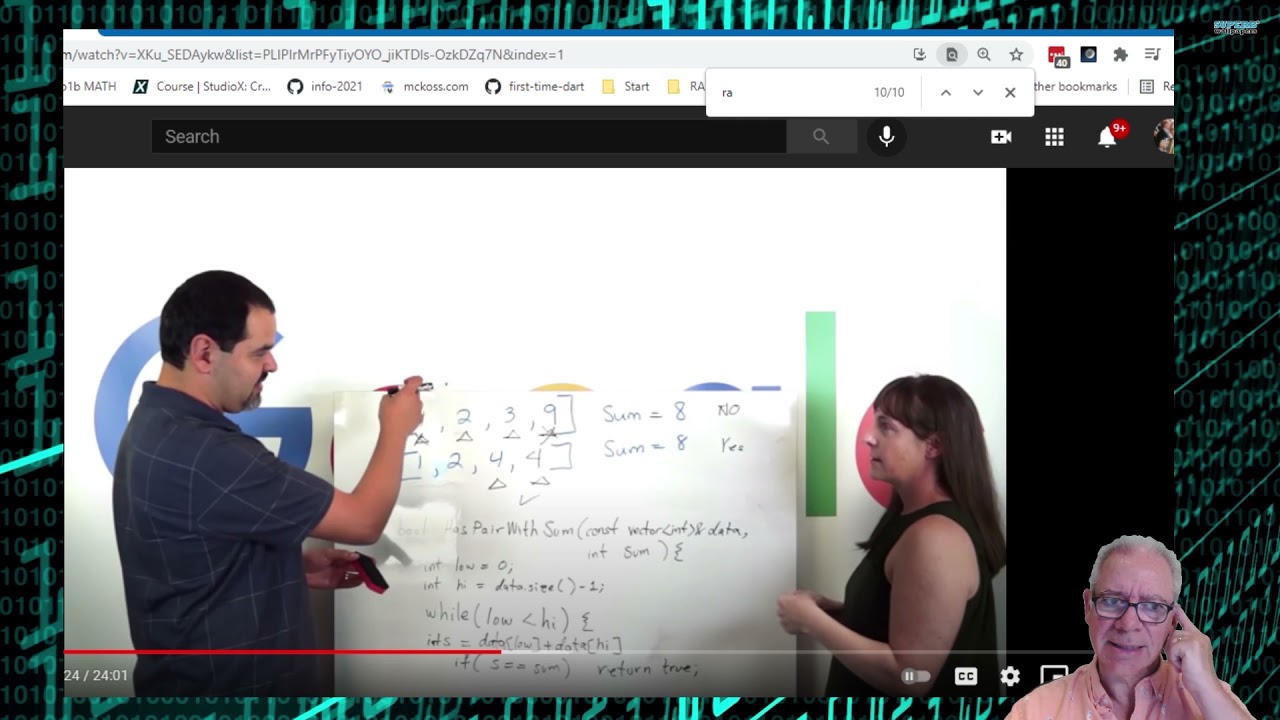 SUPERB
wallpapers
m/watch?v=XKu_SEDAykw&list=PLIPIrMrPFyTiyOYO_jiKTDls-OzkDZq7N&index=1
40
p1b MATH Course | StudioX: Cr... info-2021 mckoss.com first-time-dart Start RA ther bookmarks Re
ra 10/10
Search 9+
, 2 , 3 , 9 ] Sum = 8 NO
[ 1 , 2 , 4 , 4 ] Sum = 8 Yes
bool HasPairWithSum(const vector<int>& data,
int sum ) {
int low = 0;
int hi = data.size() - 1;
while (low < hi) {
int s = data[low] + data[hi]
if ( s == sum) return true;
24 / 24:01 CC